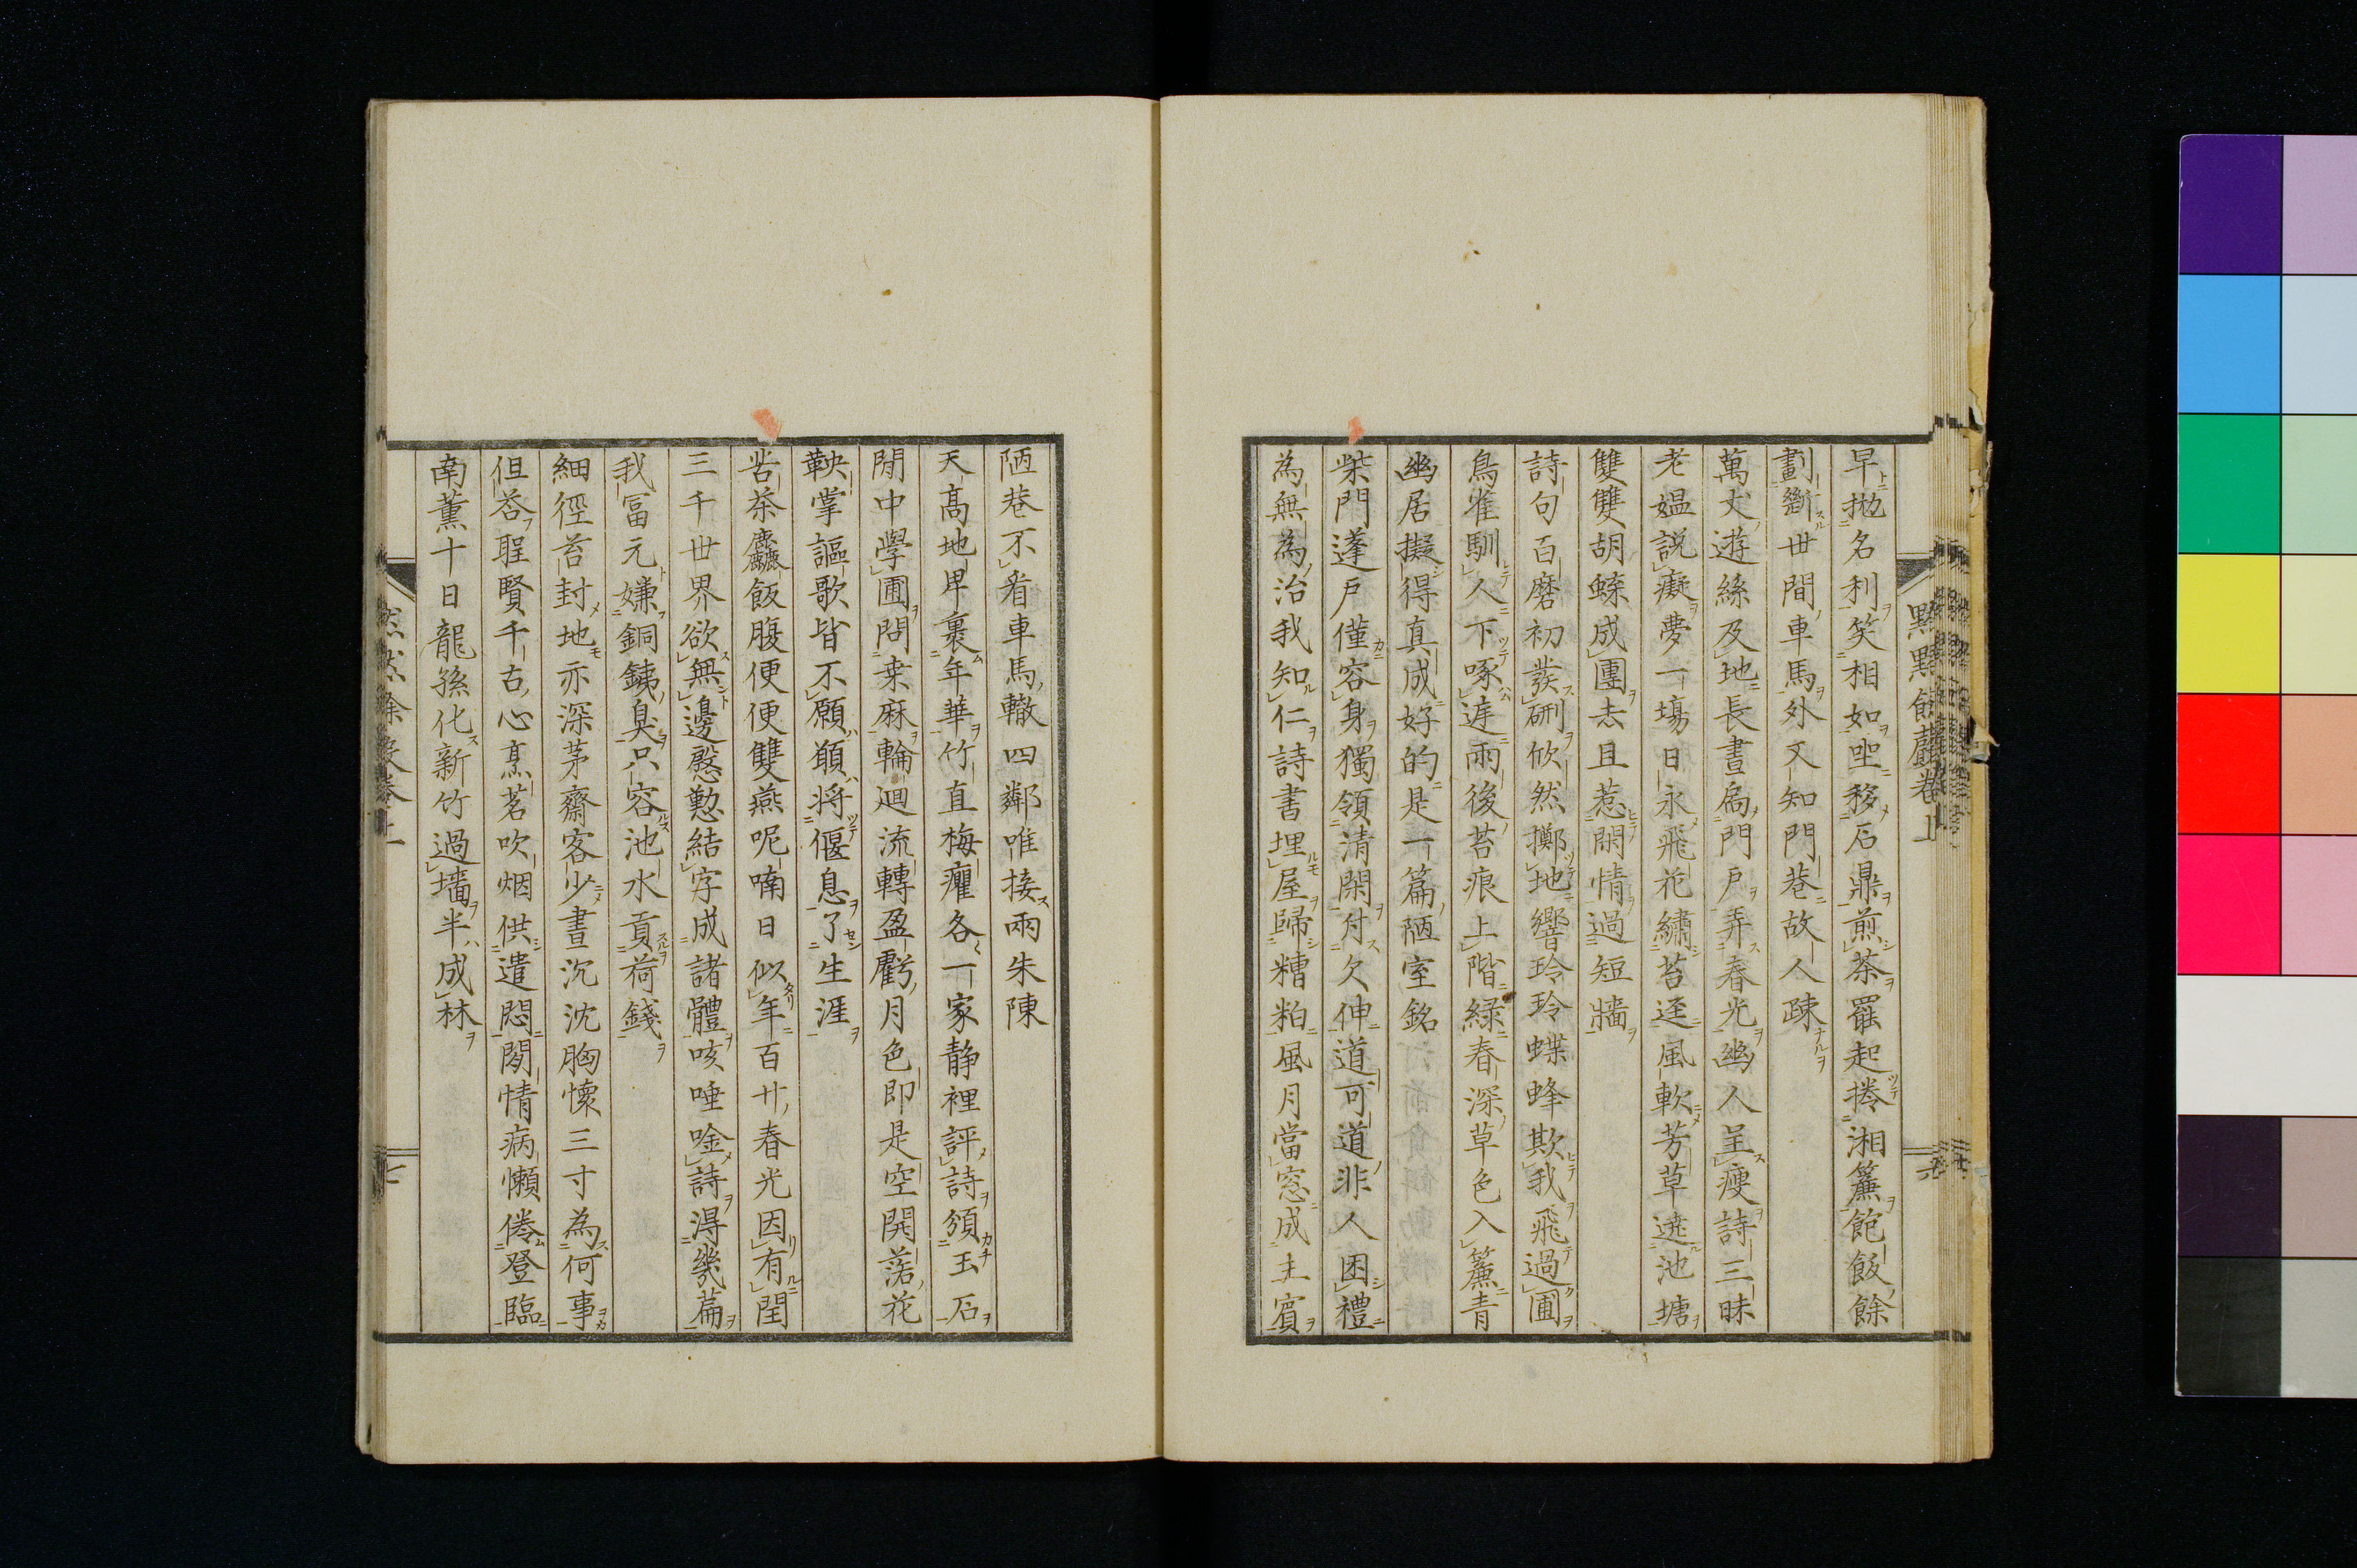 早抛名利笑相如坐移石鼎煎茶罷起捲湘簾飽飯餘
劃斷世間車馬外又知門巷故人疎
萬丈遊絲及地長晝扃門戶弄春光幽人呈瘦詩三昧
老媼説癡夢一場日永飛花繡苔逕風軟芳草遶池塘
雙雙胡蝶成團去且惹閑情過短牆
詩句百磨初發硎欣然擲地響玲玲蝶蜂欺我飛過圃
鳥雀馴人下啄庭雨後苔痕上階緑春深草色入簾青
幽居擬得真成好的是一篇陋室銘
柴門蓬戶僅容身獨領清閑付欠伸道可道非人困禮
為無為治我知仁詩書埋屋歸糟粕風月當窓成主賓
默默餘聲卷上
六
陋巷不看車馬轍四鄰唯接兩朱陳
天高地卑裏年華竹直梅癯各一家静裡評詩頒玉石
閒中學圃問桒麻輪廻流轉盈虧月色即是空開落花
鞅掌謳歌皆不願願將偃息了生涯
苦茶麤飯腹便便雙燕呢喃日似年百廿春光因有閏
三千世界欲無邊慇懃結字成諸體咳唾唫詩得幾篇
我富元嫌銅銕臭只容池水貢荷錢
細徑苔封地亦深茅齋客少晝沉沈胸懷三寸為何事
但荅聖賢千古心烹茗吹烟供遣悶閑情病懶倦登臨
南薫十日龍孫化新竹過墻半成林
七